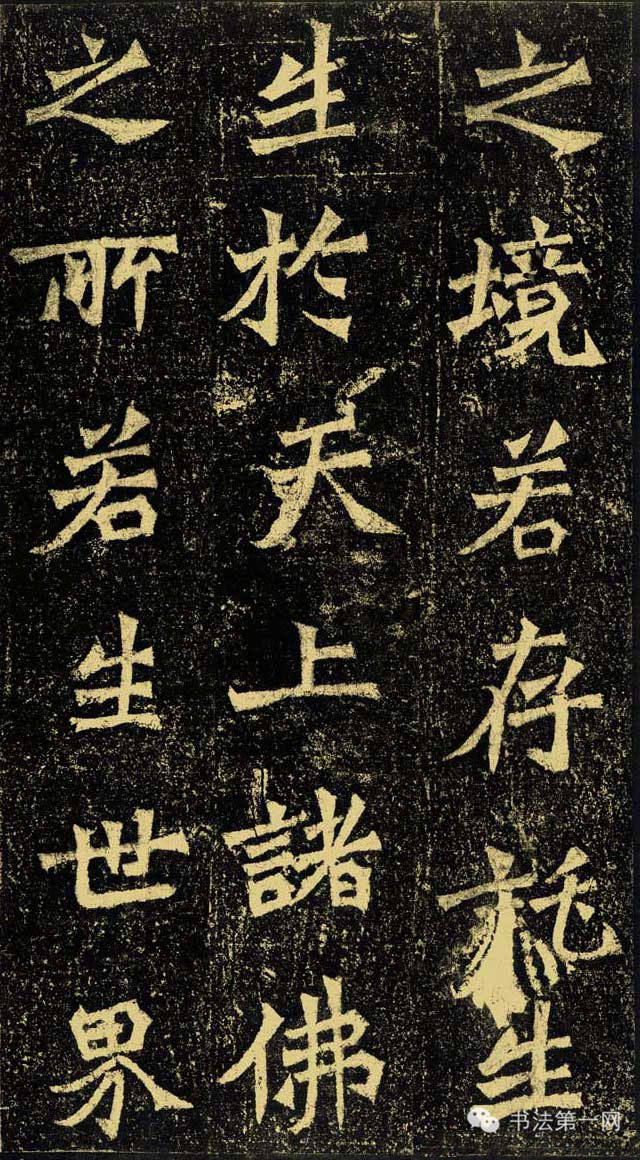 之境若存託生
生於天上諸佛
之所若生世界
书法第一网